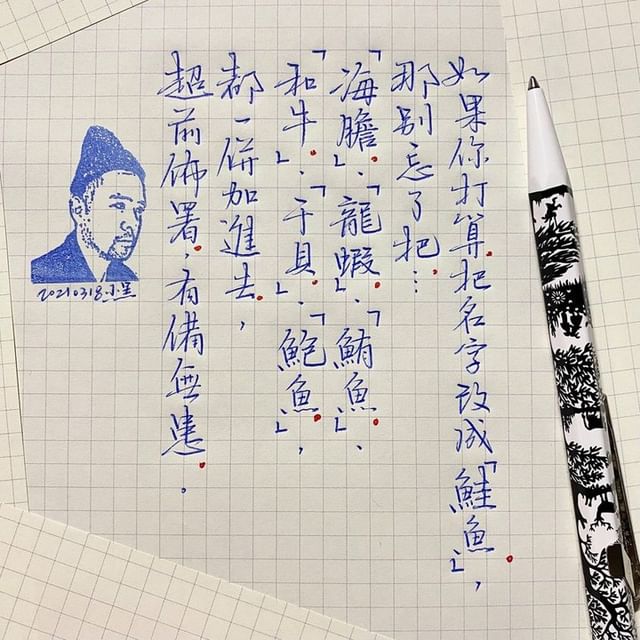 如果你打算把名字改成「鮭魚」，
那別忘了把…
「海膽」、「龍蝦」、「鮪魚」、
「和牛」、「干貝」、「鮑魚」，
都一併加進去，
超前佈署，有備無患。
20210318.小呈